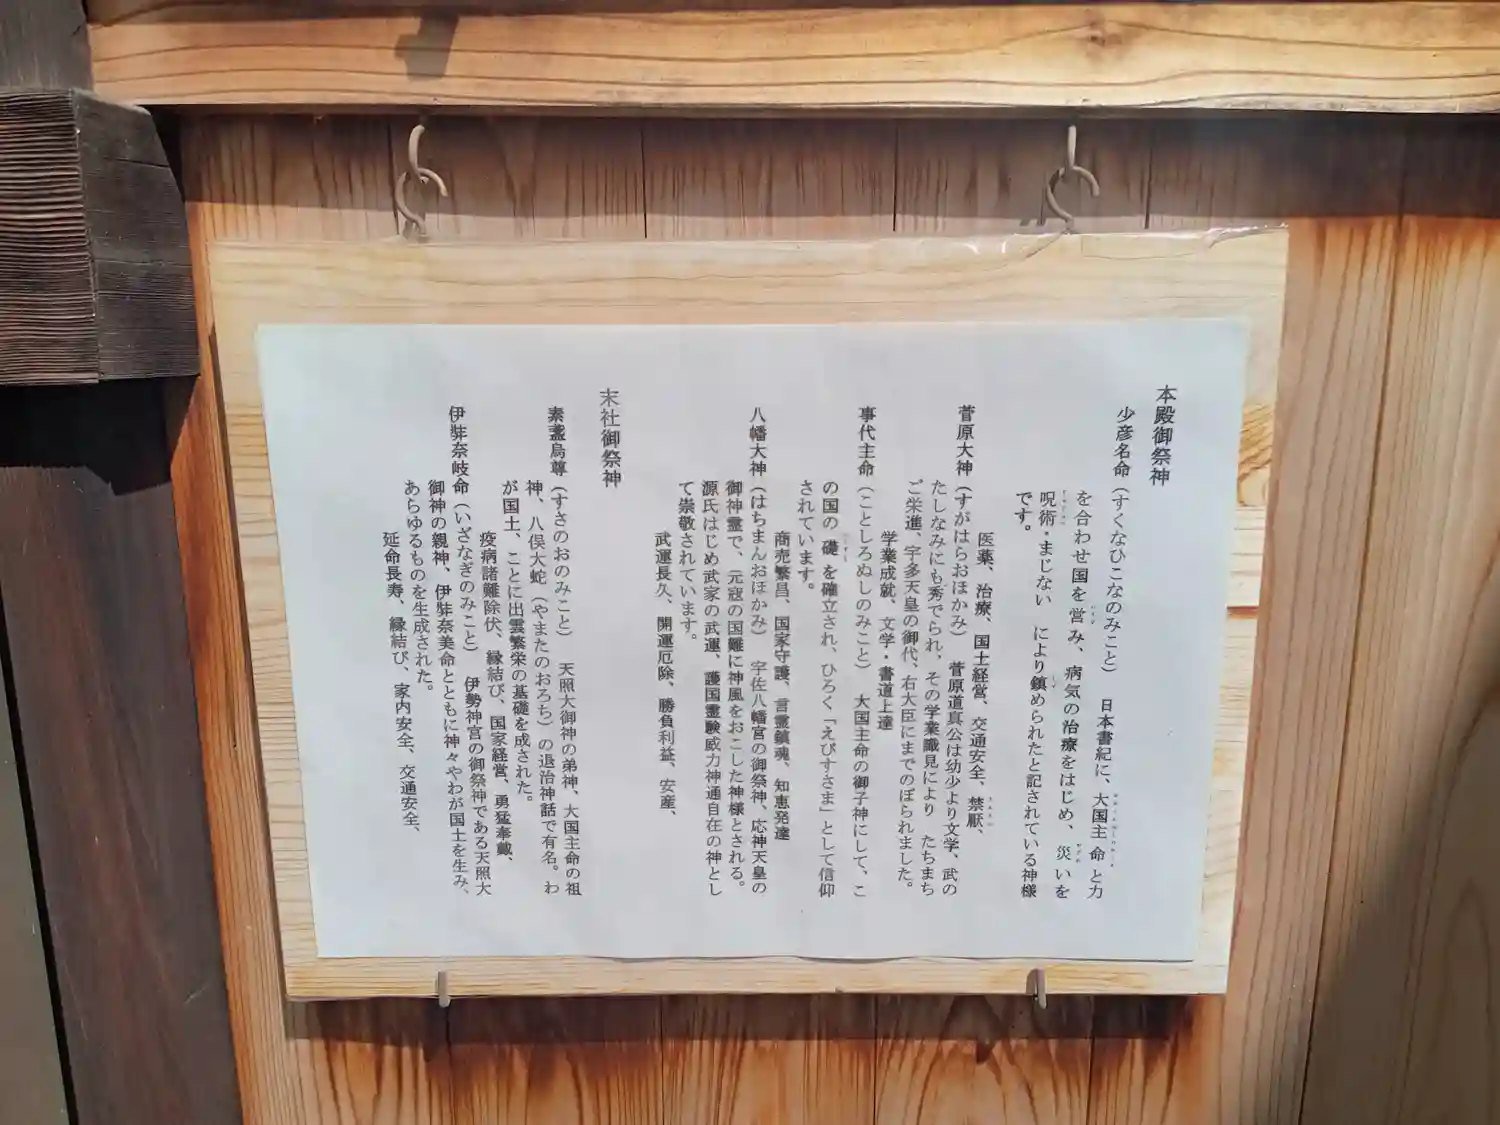 本殿御祭神
少彦名命（すくなひこなのみこと）　日本書紀に、大国主命と力
を合わせ国を営み、病気の治療をはじめ、災いを
呪術・まじない　により鎮められたと記されている神様
です。
医薬、治療、国土経営、交通安全、禁厭、
菅原大神（すがはらおほかみ）　菅原道真公は幼少より文学、武の
たしなみにも秀でられ、その学業識見により　たちまち
ご栄進、宇多天皇の御代、右大臣にまでのぼられました。
学業成就、文学・書道上達
事代主命（ことしろぬしのみこと）　大国主命の御子神にして、こ
の国の礎を確立され、ひろく「えびすさま」として信仰
されています。
商売繁昌、国家守護、言霊鎮魂、知恵発達
八幡大神（はちまんおほかみ）　宇佐八幡宮の御祭神、応神天皇の
御神霊で、元寇の国難に神風をおこした神様とされる。
源氏はじめ武家の武運、護国霊験威力神通自在の神とし
て崇敬されています。
武運長久、開運厄除、勝負利益、安産、
末社御祭神
素盞烏尊（すさのおのみこと）　天照大御神の弟神、大国主命の祖
神、八俣大蛇（やまたのおろち）の退治神話で有名。わ
が国土、ことに出雲繁栄の基礎を成された。
疫病諸難除伏、縁結び、国家経営、勇猛奉戴、
伊弉奈岐命（いざなぎのみこと）　伊勢神宮の御祭神である天照大
御神の親神、伊弉奈美命とともに神々やわが国土を生み、
あらゆるものを生成された。
延命長寿、縁結び、家内安全、交通安全、